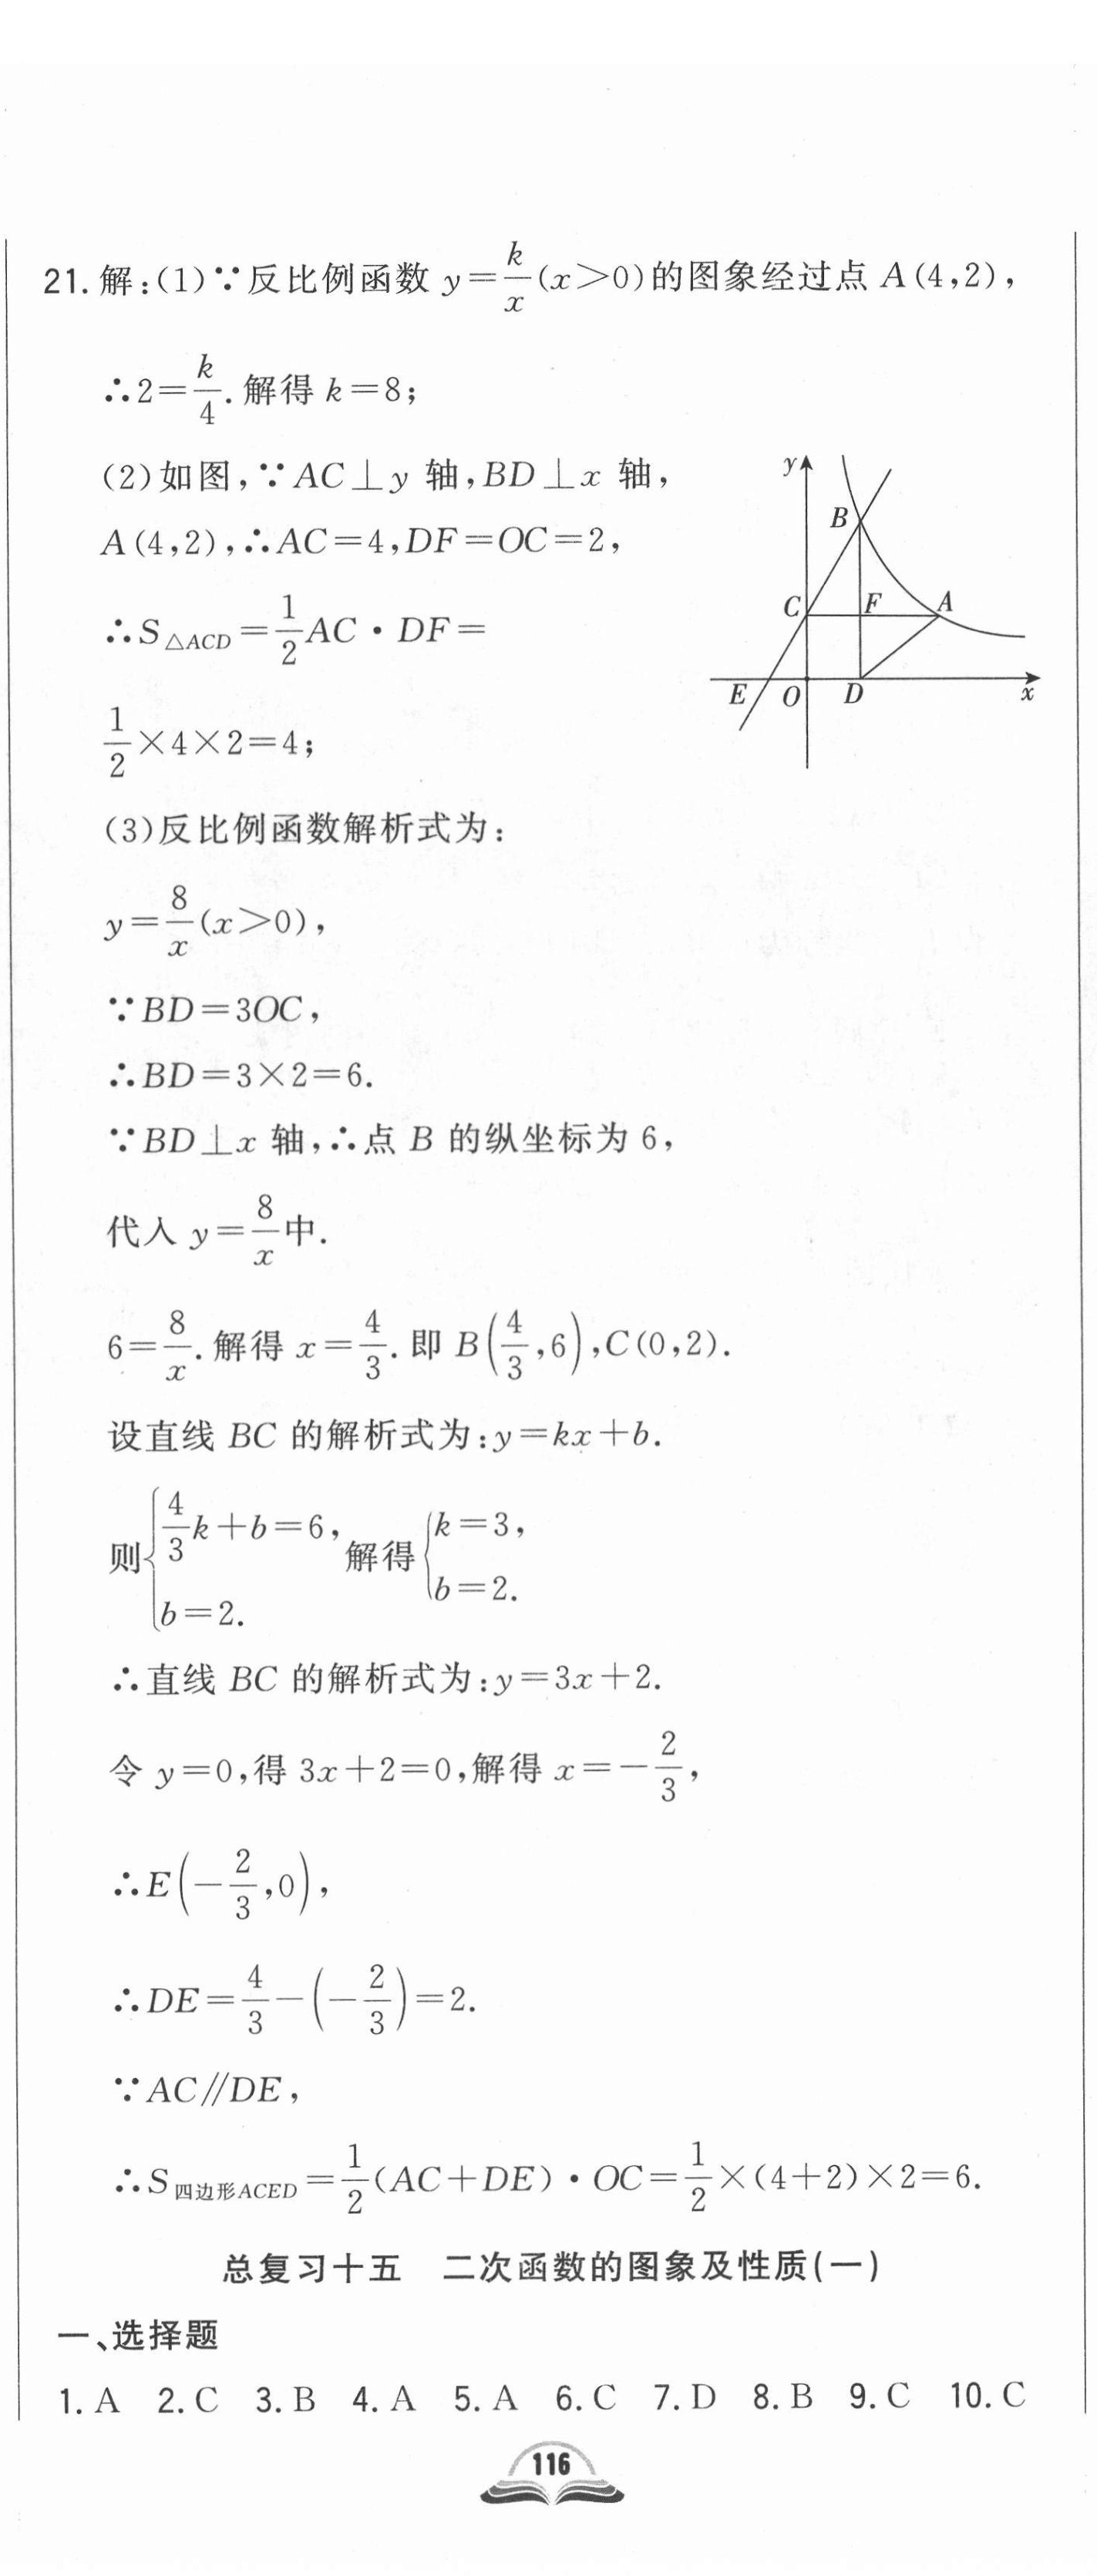 21. 解:(1)∵反比例函数 y=k/x(x>0)的图象经过点 A(4,2),
∴2=k/4.解得 k=8;
(2)如图,∵AC⊥y 轴,BD⊥x 轴,
A(4,2),∴AC=4,DF=OC=2,
∴S△ACD=1/2AC·DF=
1/2×4×2=4;
y
B
C
F
A
E
O
D
x
(3)反比例函数解析式为:
y=8/x(x>0),
∵BD=3OC,
∴BD=3×2=6.
∵BD⊥x 轴,∴点 B 的纵坐标为 6,
代入 y=8/x中.
6=8/x.解得 x=4/3.即 B(4/3,6),C(0,2).
设直线 BC 的解析式为:y=kx+b.
则{4/3k+b=6, b=2. 解得{k=3, b=2.
∴直线 BC 的解析式为:y=3x+2.
令 y=0,得 3x+2=0,解得 x=-2/3,
∴E(-2/3,0),
∴DE=4/3-(-2/3)=2.
∵AC∥DE,
∴S四边形ACED=1/2(AC+DE)·OC=1/2×(4+2)×2=6.
总复习十五 二次函数的图象及性质(一)
一、选择题
1. A 2. C 3. B 4. A 5. A 6. C 7. D 8. B 9. C 10. C
116